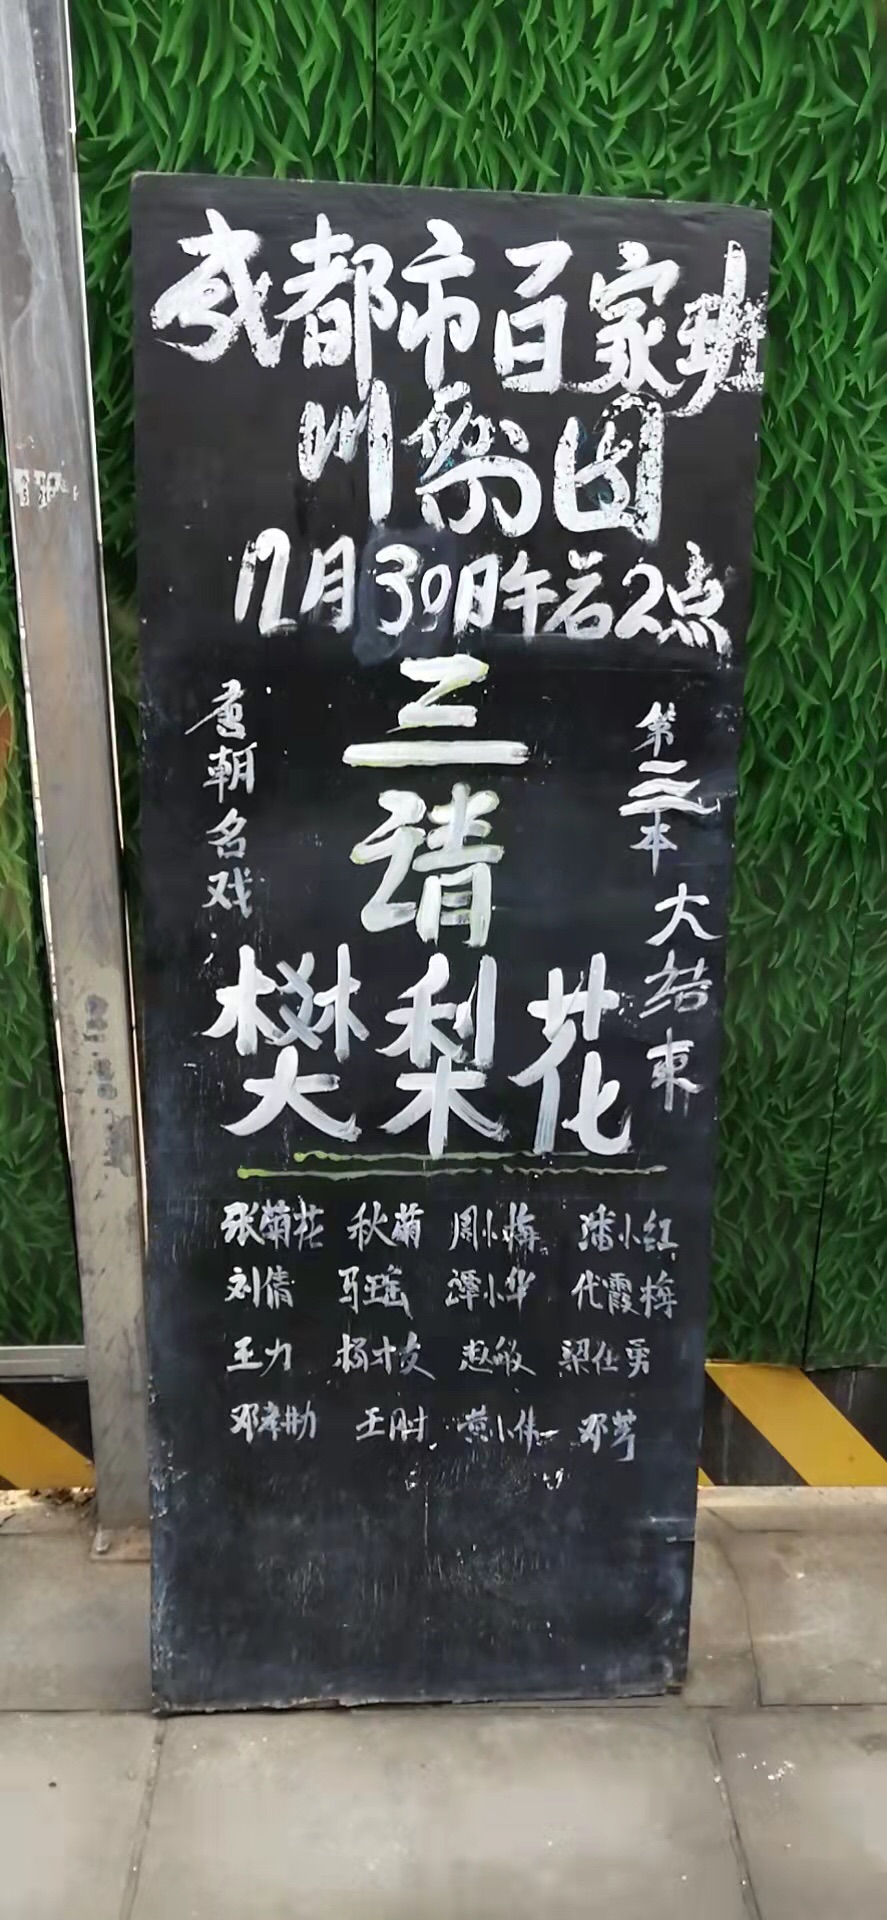 成都市百家班
川剧团
12月30日午后2点
唐朝名戏
三请
樊梨花
第三本 大结束
张菊花 秋菊 周小梅 潘小红
刘倩 马瑶 谭小华 代霞梅
王力 杨才友 赵敏 梁仕勇
邓孝勋 王时 黄小伟 邓芳